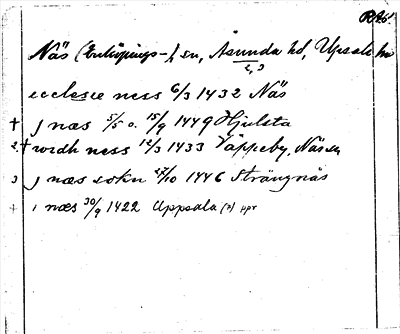 RA 6¹
Näs (Enköpings-) sn, Åsunda hd, Upsala län
2, 3
ecclesie ness 6/3 1432 Näs
+ j næs 5/5 o. 15/9 1449 Hjulsta
2. + widh ness 12/3 1433 Väppeby, Näs sn
3 j næs sokn 27/10 1446 Strängnäs
+ i næs 30/9 1422 Uppsala (?) ppr